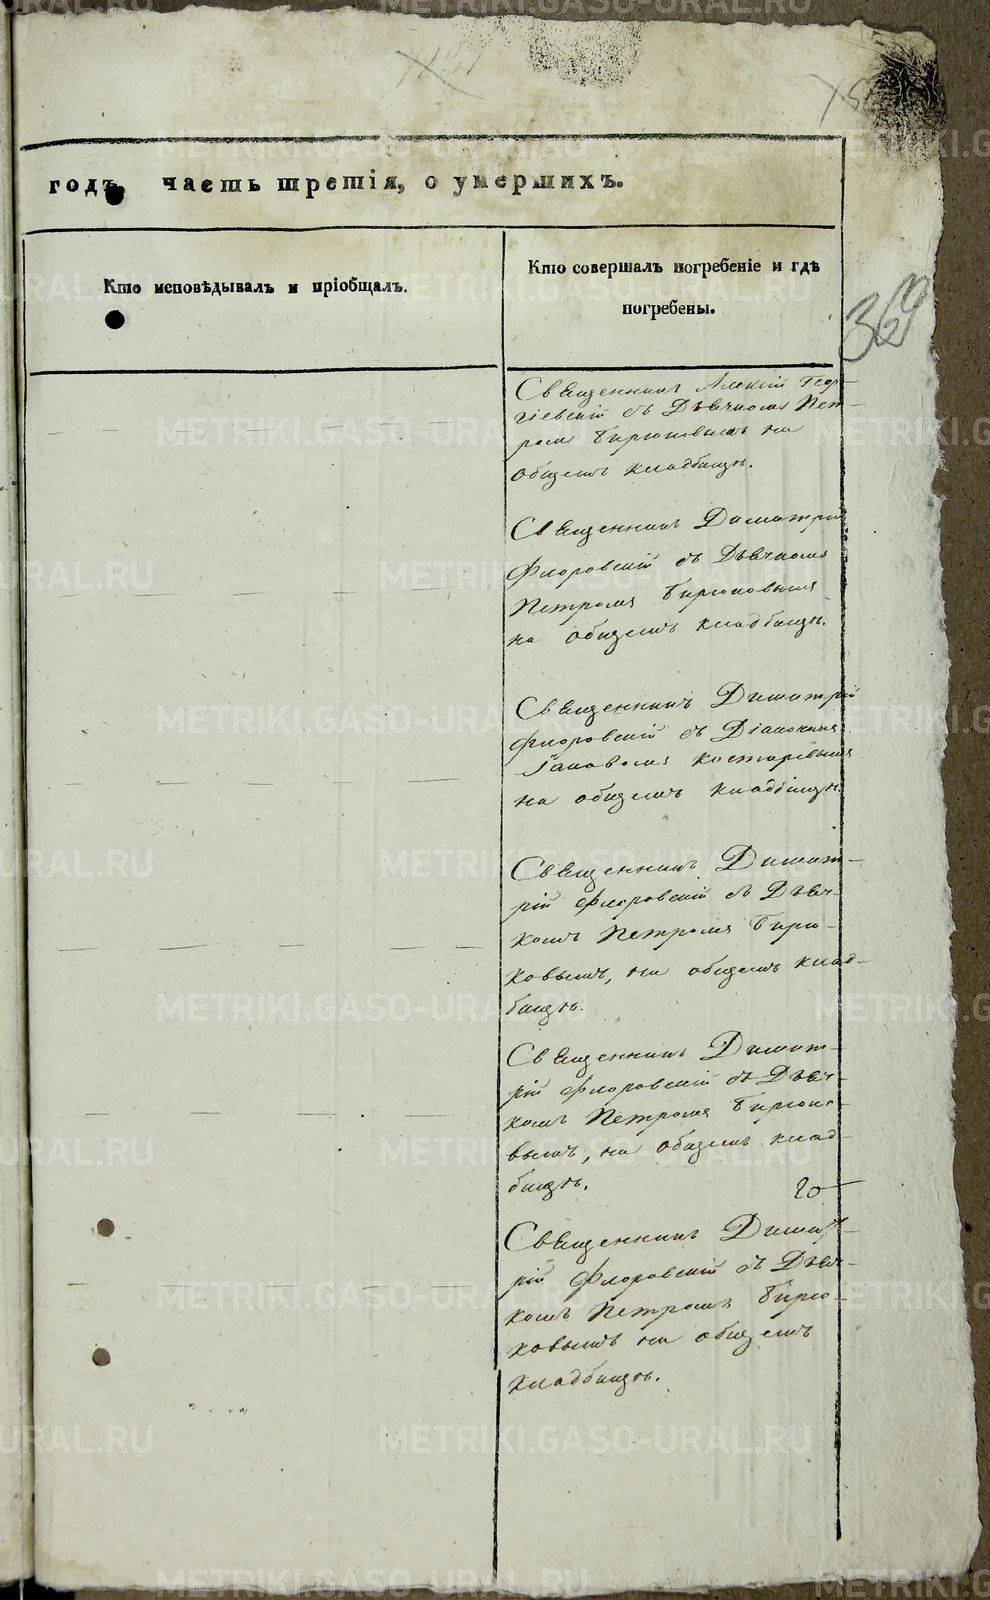 годъ, часть третія, о умершихъ.
Кто исповѣдывалъ и пріобщалъ.
Кто совершалъ погребеніе и гдѣ
погребены.
369
Священникъ Алексій Геор-
гіевскій съ Дьячкомъ Пет-
ромъ Бирюковымъ на
общемъ кладбищѣ.
Священникъ Димитрій
Флоровскій съ Дьячкомъ
Петромъ Бирюковымъ
на общемъ кладбищѣ.
Священникъ Димитрій
Флоровскій съ Діакономъ
Іаковомъ Костаревымъ
на общемъ кладбищѣ.
Священникъ Димит-
рій Флоровскій съ Дьяч-
комъ Петромъ Бирю-
ковымъ, на общемъ клад-
бищѣ.
Священникъ Димит-
рій Флоровскій съ Дьяч-
комъ Петромъ Бирюко-
вымъ, на общемъ клад-
бищѣ.
Священникъ Димит-
рій Флоровскій съ Дьяч-
комъ Петромъ Бирю-
ковымъ на общемъ
кладбищѣ.
METRIKI.GASO-URAL.RU